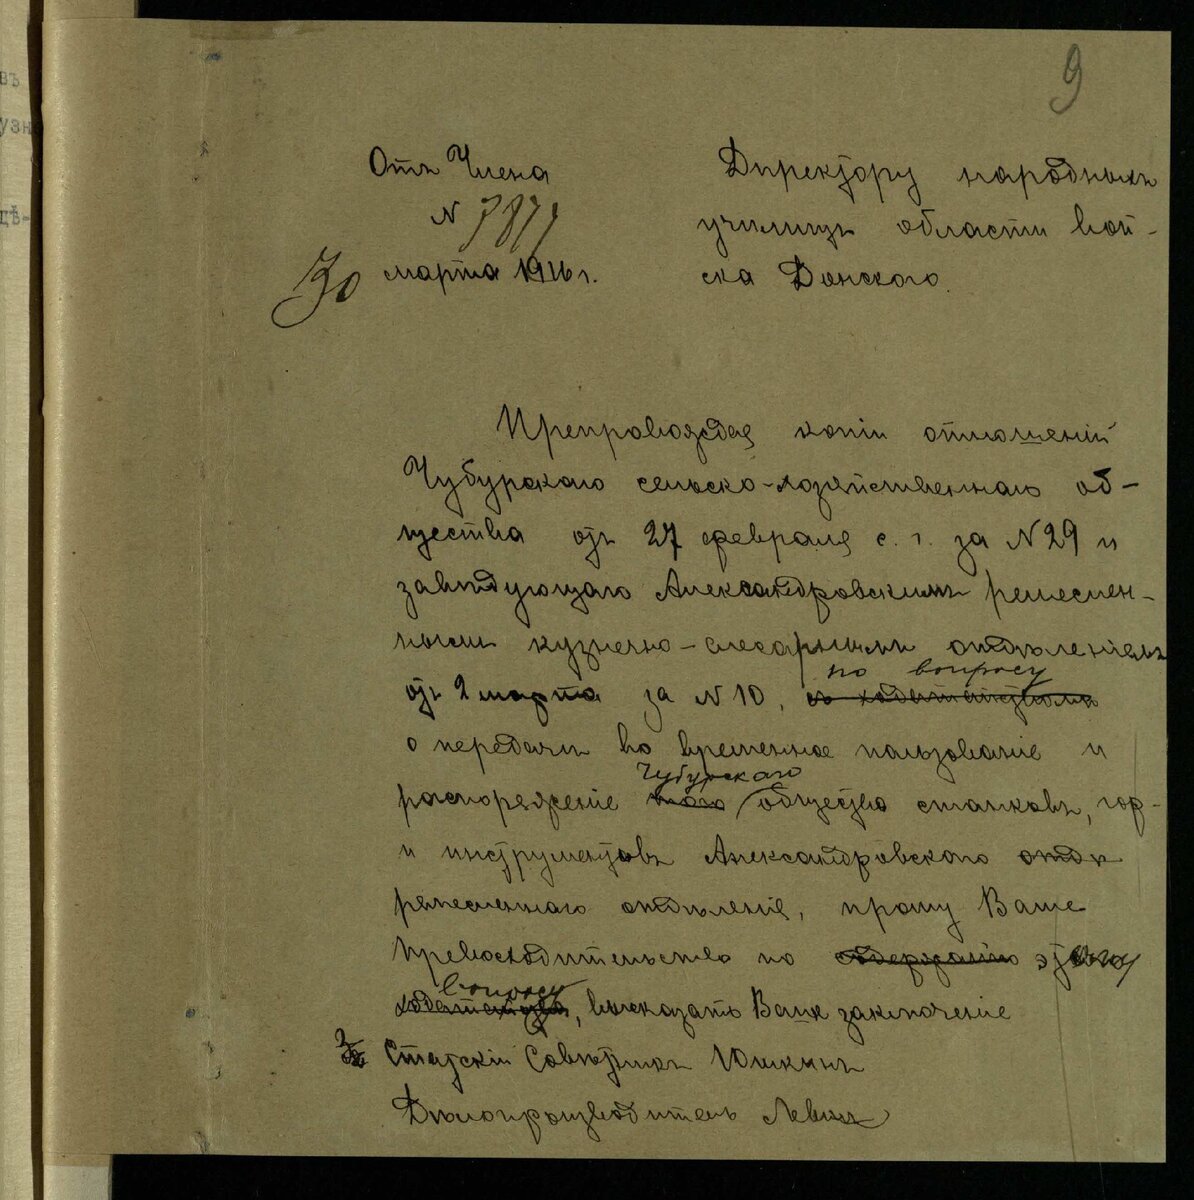 въ
узн
дѣ-
9
Отъ Члена
N 3871
30 марта 1916 г.
Директору народныхъ
училищъ области вой-
ска Донского.
Препровождая копіи отношеній
Чубурскаго сельско-хозяйственнаго об-
щества отъ 27 февраля с. г. за N 29 и
завѣдующаго Александровскимъ ремеслен-
нымъ кузнечно-слесарнымъ отдѣленіемъ
по вопросу
отъ 2 марта за N 10, съ ходатайствомъ
о передачѣ во временное пользованіе и
Чубурскаго
распоряженіе того общества станковъ, гор-
и инструментовъ Александровскаго отдѣ
ремесленнаго отдѣленія, прошу Ваше
Превосходительство по содержанію этому
вопросу
ходатайства, высказать Ваше заключеніе
Статскій Совѣтникъ
Дѣлопроизводитель